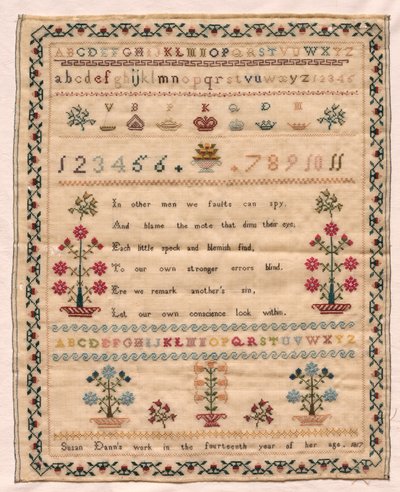 ABCDEFGHIJKLMNOPQRSTUVWXYZ
abcdefghijklmnopqrstuvwxyz123456
V B P K D
123456 789 10 11
In other men we faults can spy,
And blame the mote that dims their eye,
Each little speck and blemish find,
To our own stronger errors blind.
Ere we remark another's sin,
Let our own conscience look within.
ABCDEFGHIJKLMNOPQRSTUVWXYZ
Susan Dann's work in the fourteenth year of her age. 1817